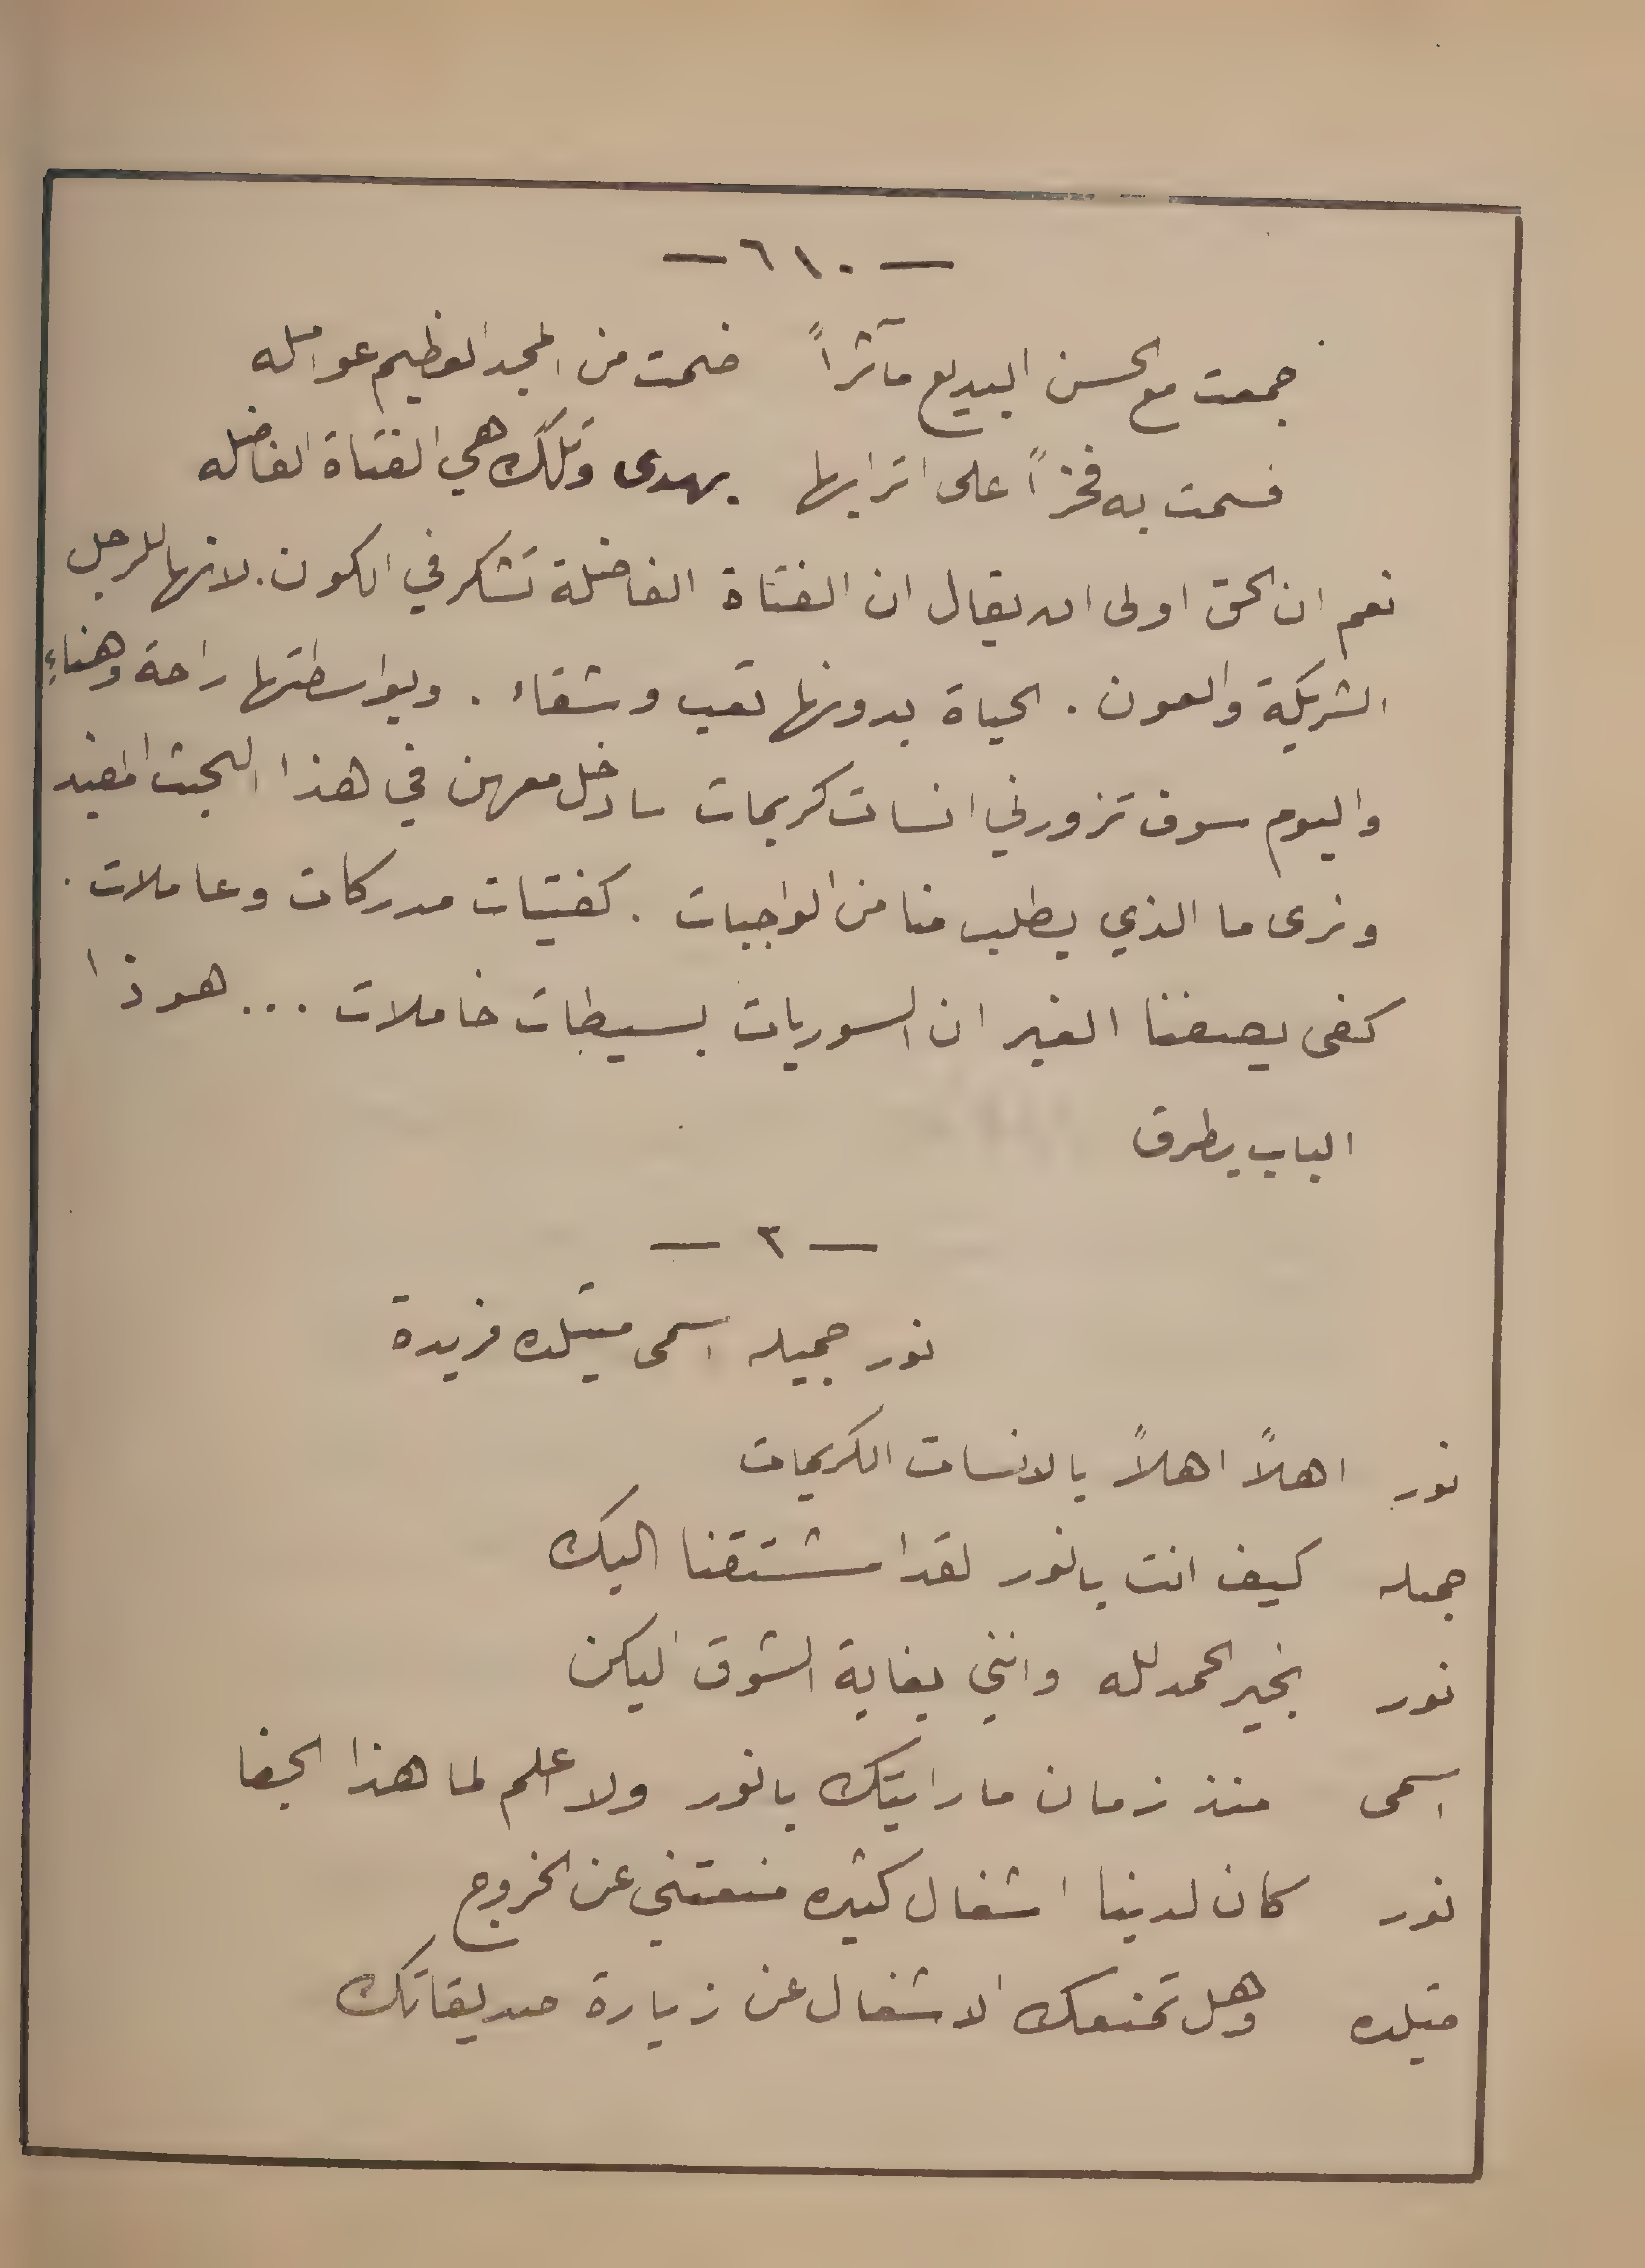 — ٦١٠ —
جمعت مع الحسن البديع مآثراً ضمت من المجد العظيم عوامله
فسمت به فخراً على اترابها بهدى وتلك هي الفتاة الفاضله
نعم ان الحق اولى ان يقال ان الفتاة الفاضلة تشكر في الكون. لانها للرجل
الشريكة والعون. الحياة بدونها تعب وشقاء. وبواسطتها راحة وهناءٍ
واليوم سوف تزورني انسات كريمات سادخل معهن في هذا البحث المفيد
ونرى ما الذي يطلب منا من الواجبات. كفتيات مدركات وعاملات.
كفى يصفنا الغير ان السوريات بسيطات خاملات ... هوذا
الباب يطرق
— ٢ —
نور جميله اسمى متيلده فريدة
نور اهلاً اهلاً بالانسات الكريمات
جميله كيف انت يانور لقد اشتقنا اليك
نور بخير الحمد لله وانني بغاية الشوق اليكن
اسمى منذ زمان ما رايتك يانور ولا اعلم لما هذا الجفا
نور كان لدينا اشغال كثيره منعتني عن الخروج
متيلده وهل تمنعك الاشغال عن زيارة صديقاتك